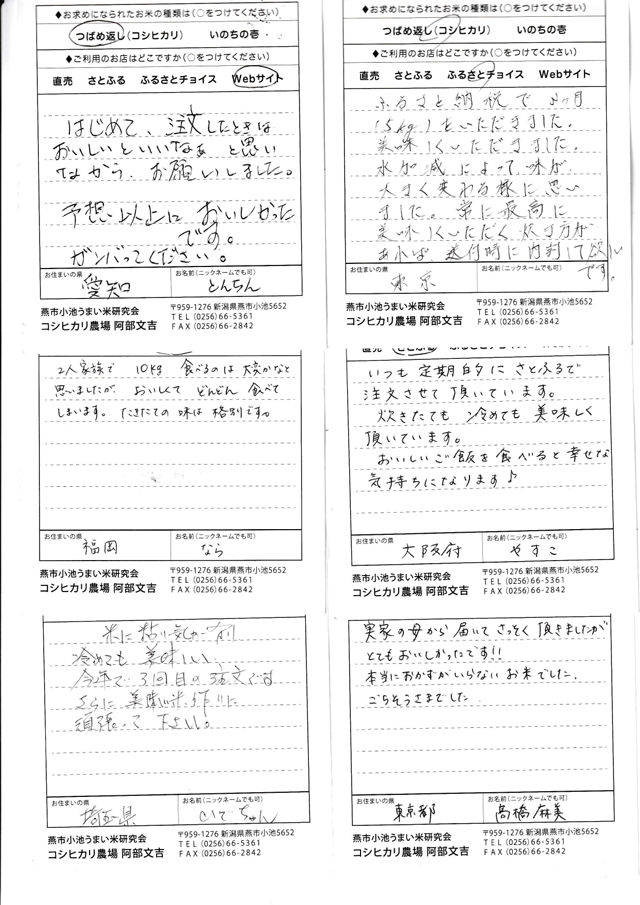 ◆お求めになられたお米の種類は(○をつけてください)
つばめ返し(コシヒカリ) いのちの壱
◆ご利用のお店はどこですか(○をつけてください)
直売 さとふる ふるさとチョイス Webサイト
はじめて、注文したときは
おいしいといいなぁ と思い
ながら、お願いしました。
予想以上に おいしかった
です。
ガンバってください。
お住まいの県 お名前(ニックネームでも可)
愛知 とんちん
燕市小池うまい米研究会
コシヒカリ農場 阿部文吉
〒959-1276 新潟県燕市小池5652
TEL (0256)66-5361
FAX (0256)66-2842
◆お求めになられたお米の種類は(○をつけてください)
つばめ返し(コシヒカリ) いのちの壱
◆ご利用のお店はどこですか(○をつけてください)
直売 さとふる ふるさとチョイス Webサイト
ふるさと納税で
(5kg)をいただきました。
美味しくいただきました。
水加減によって味が
大きく変わる様に思い
ました。常に最高に
美味しくいただく炊き方が
あれば 送付時に内封して欲しい
です。
お住まいの県 お名前(ニックネームでも可)
東京
燕市小池うまい米研究会
コシヒカリ農場 阿部文吉
〒959-1276 新潟県燕市小池5652
TEL (0256)66-5361
FAX (0256)66-2842
2人家族で 10kg 食べるのは大変かなと
思いましたが、おいしくて どんどん 食べて
しまいます。たきたての 味は 格別ですね。
お住まいの県 お名前(ニックネームでも可)
福岡 なら
燕市小池うまい米研究会
コシヒカリ農場 阿部文吉
〒959-1276 新潟県燕市小池5652
TEL (0256)66-5361
FAX (0256)66-2842
直売 さとふる ふるさとチョイス Webサイト
いつも 定期的に さとふるで
注文させて 頂いています。
炊きたても 冷めても 美味しく
頂いています。
おいしいご飯を食べると幸せな
気持ちになります♪
お住まいの県 お名前(ニックネームでも可)
大阪府 やすこ
燕市小池うまい米研究会
コシヒカリ農場 阿部文吉
〒959-1276 新潟県燕市小池5652
TEL (0256)66-5361
FAX (0256)66-2842
米に粘り気が有り
冷めても 美味しい、
今年で 3回目の注文です
さらに 美味しい米作りに
頑張って 下さい。
お住まいの県 お名前(ニックネームでも可)
埼玉県 ひでちゃん
燕市小池うまい米研究会
コシヒカリ農場 阿部文吉
〒959-1276 新潟県燕市小池5652
TEL (0256)66-5361
FAX (0256)66-2842
実家の母から届いてさっそく頂きましたが
とてもおいしかったです!!
本当におかずがいらないお米でした。
ごちそうさまでした
お住まいの県 お名前(ニックネームでも可)
東京都 髙橋麻美
燕市小池うまい米研究会
コシヒカリ農場 阿部文吉
〒959-1276 新潟県燕市小池5652
TEL (0256)66-5361
FAX (0256)66-2842